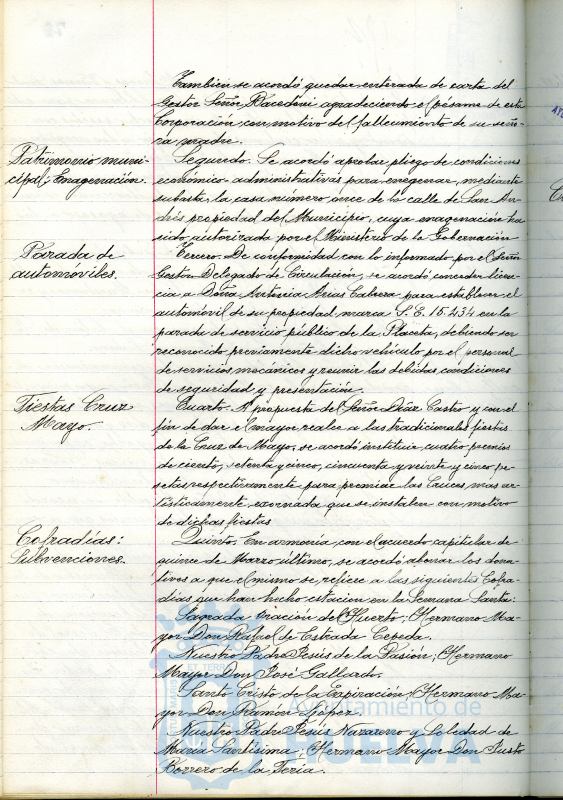 Tambien se acordó quedar enterada de carta del
Gestor Señor agradeciendo el pésame de esta
Corporación con motivo del fallecimiento de su seño-
ra madre.
Patrimonio muni-
cipal; Enagenación.
Segundo. Se acordó aprobar pliego de condiciones
económico-administrativas para enagenar, mediante
subasta, la casa número once de la calle de San An-
drés propiedad del Municipio, cuya enagenación ha
sido autorizada por el Ministerio de la Gobernación
Parada de
automoviles.
Tercero. De conformidad con lo informado por el Señor
Gestor Delegado de Circulación, se acordó conceder licen-
cia a Doña Antonia Arias Cabrera para establecer el
automóvil de su propiedad, marca S.E. 15.434 en la
parada de servicio público de la Placeta, debiendo ser
reconocido previamente dicho vehículo por el personal
de servicios mecánicos y reunir las debidas condiciones
de seguridad y presentación.
Fiestas Cruz
Mayo.
Cuarto. A propuesta del Señor Díaz Castro y con el
fin de dar el mayor realce a las tradicionales fiestas
de la Cruz de Mayo, se acordó instituir cuatro premios
de ciento, setenta y cinco, cincuenta y veinte y cinco pe-
setas respectivamente para premiar las Cruces mas ar-
tísticamente exornada que se instalen con motivo
de dichas fiestas
Cofradías:
Subvenciones.
Quinto. En armonia con el acuerdo capitular de
quince de Marzo último, se acordó abonar los dona-
tivos a que el mismo se refiere a las siguientes Cofra-
dias que han hecho estacion en la Semana Santa:
Sagrada Oración del Huerto; Hermano Ma-
yor Don Rafael de Estrada Cepeda.
Nuestro Padre Jesús de la Pasión; Hermano
Mayor Don José Gallardo.
Santo Cristo de la Expiración; Hermano Ma-
yor Don Ramón López.
Nuestro Padre Jesús Nazareno y Soledad de
Maria Santísima; Hermano Mayor Don Justo
Borrero de la Feria.
Ayuntamiento de
HUELVA